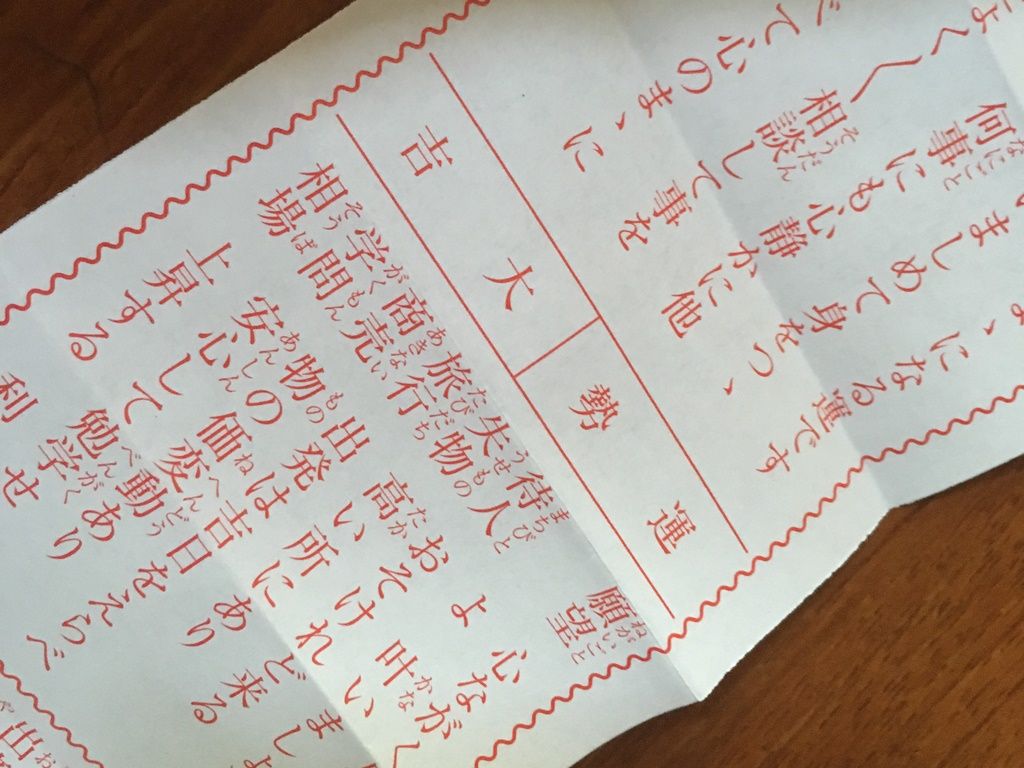 ゝになる運です
ましめて身をつゝ
何事にも心静かに他
よく〱相談して事を
べて心のまゝに
運勢 大吉
願望 心ながく
よ 叶いましょ
待人 おそけれど来る
失物 高い所にあり
旅行 出発は吉日をえらべ
商売 物の価は変動あり
学問 安心して勉学せ
相場 上昇する 利
出